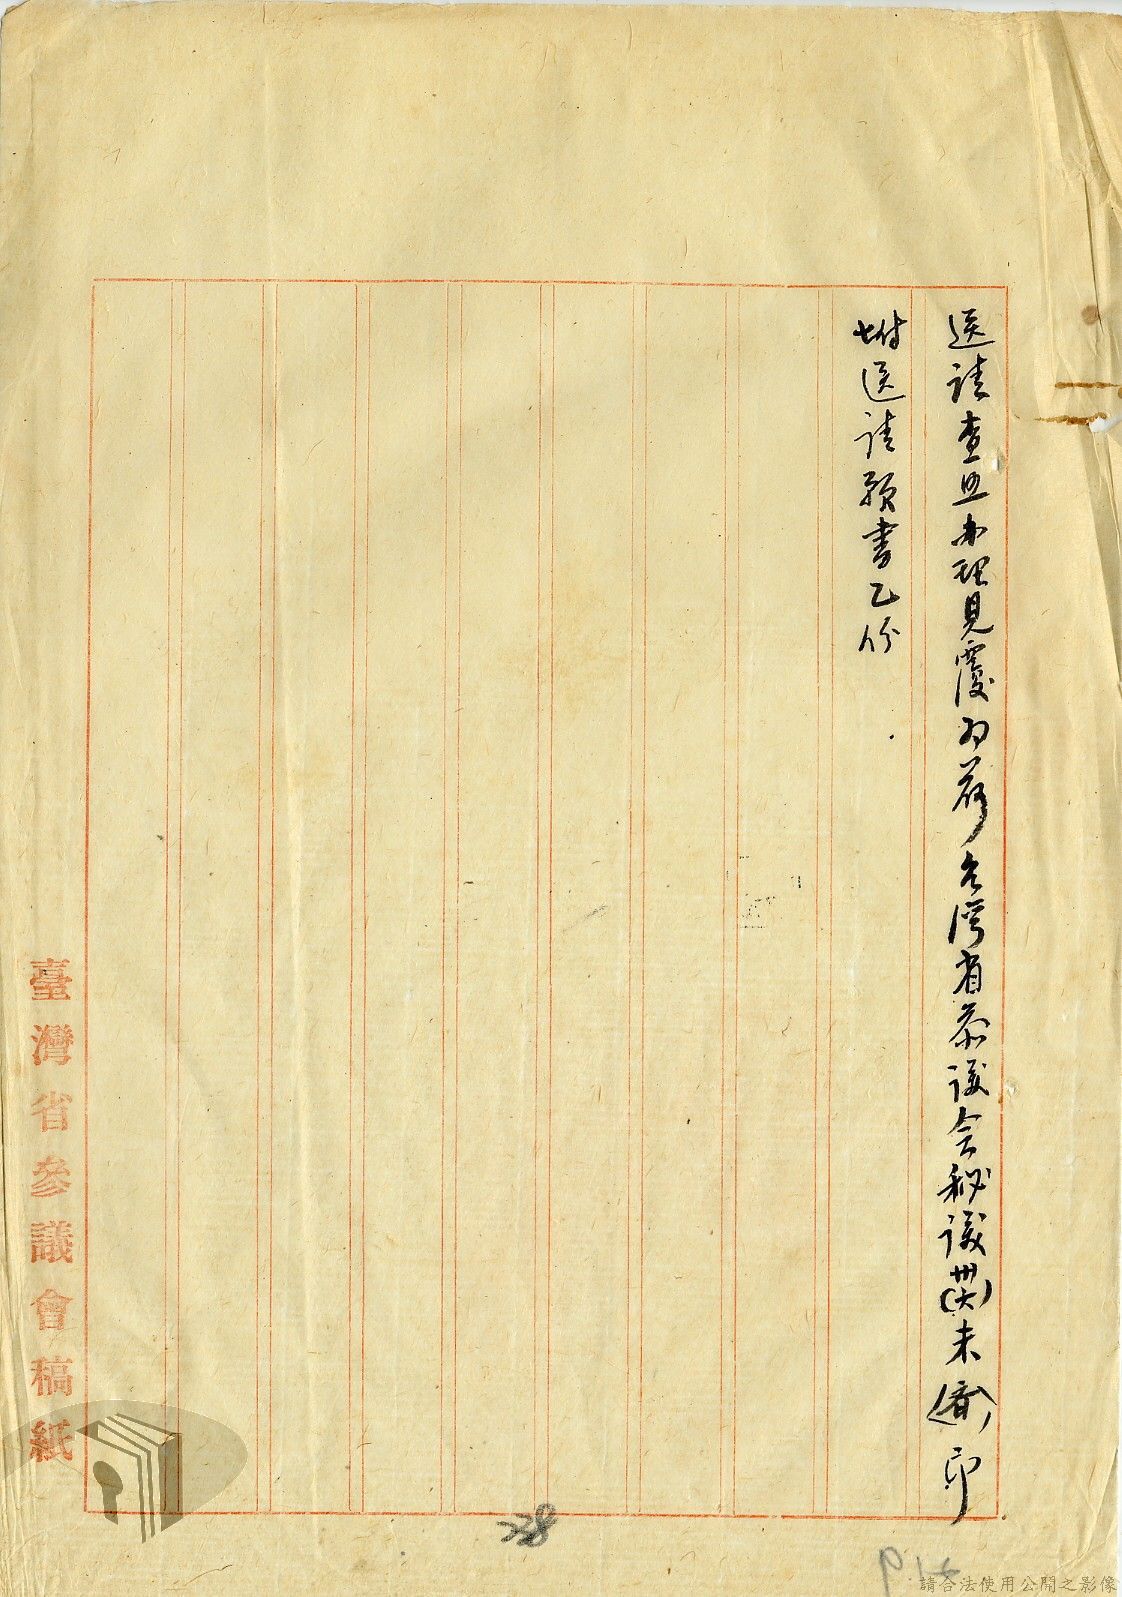 送請查照办理見覆為荷台灣省参議会秘議(卅六)未(　)印
附送請願書乙份
臺灣省參議會稿紙
228
請合法使用公開之影像